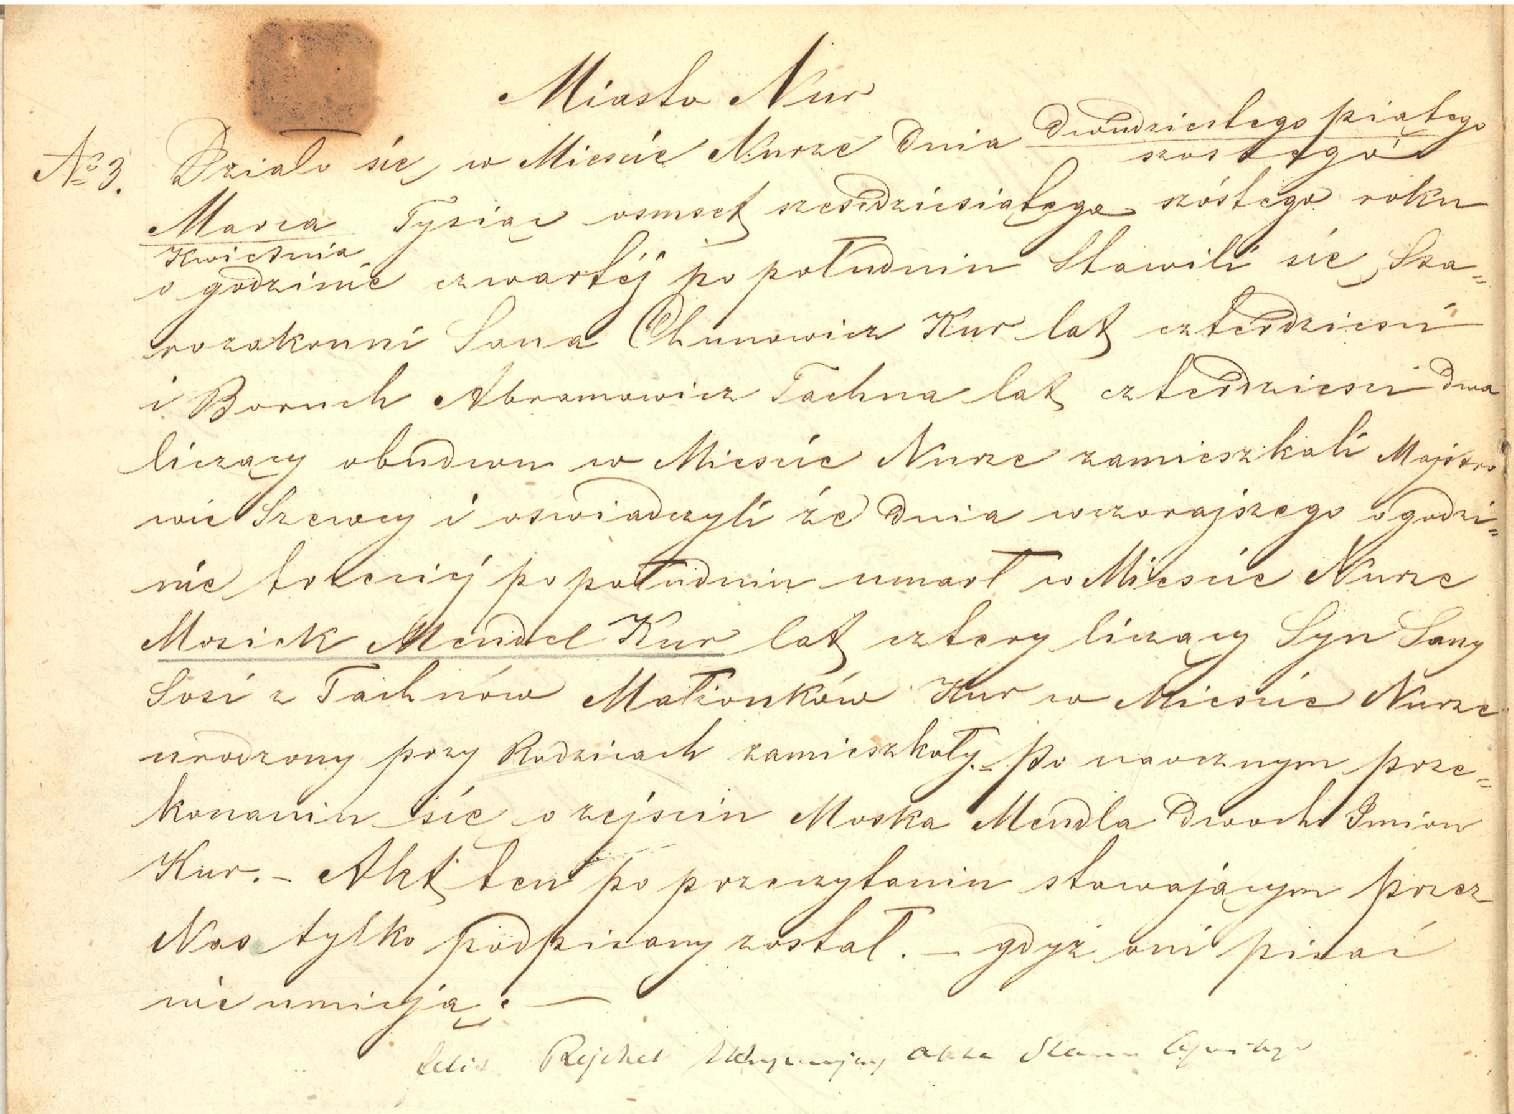 Miasto Nur
№ 3. Działo się w Mieście Nurze dnia dwudziestego piątego
szostego
Marca Tysiąc osmset sześćdziesiątego szóstego roku
Kwietnia
o godzinie czwartéj po południu Stawili się Sta=
rozakonni Sana Chunowicz Kur lat czterdzieści
i Boruch Abramowicz Tachna lat czterdzieści dwa
liczący obudwu w Mieście Nurze zamieszkali Majstro
wie Szewcy i oswiadczyli że dnia wczorajszego o godzi=
nie trzeciéj po południu umarł w Mieście Nurze
Mosiek Mendel Kur lat cztery liczący Syn Sany
Sosi z Tachnów Małżonków Kur w Mieście Nurze
urodzony przy Rodzicach zamieszkały. – Po naocznym prze=
konaniu się o zejściu Moska Mendla dwoch Imion
Kur. – Akt ten po przeczytaniu stawającym przez
Nas tylko podpisany został. – gdyż oni pisać
nie umieją. —
Rejchel Utrzymujący Akta Stanu Cywilnego